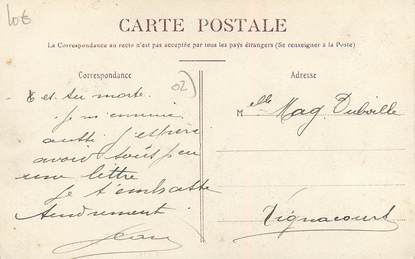 10€
CARTE POSTALE
La Correspondance au recto n'est pas acceptée par tous les pays étrangers (Se renseigner à la Poste)
Correspondance
02
Adresse
Es-tu morte.
Je m'ennuie
aussi j'espère
avoir tous peu
une lettre
Je t'embrasse
tendrement
Jean
Melle Mag. Dubville
Vignacourt